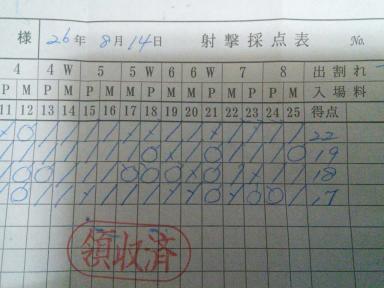 様 26年 8月 14日 射撃採点表 No.
4 4 W 5 5W 6 6 W 7 8 出割れ
P M P M P M P M P M P M P M 入場料
11 12 13 14 15 16 17 18 19 20 21 22 23 24 25 得点
22
19
18
17
領収済